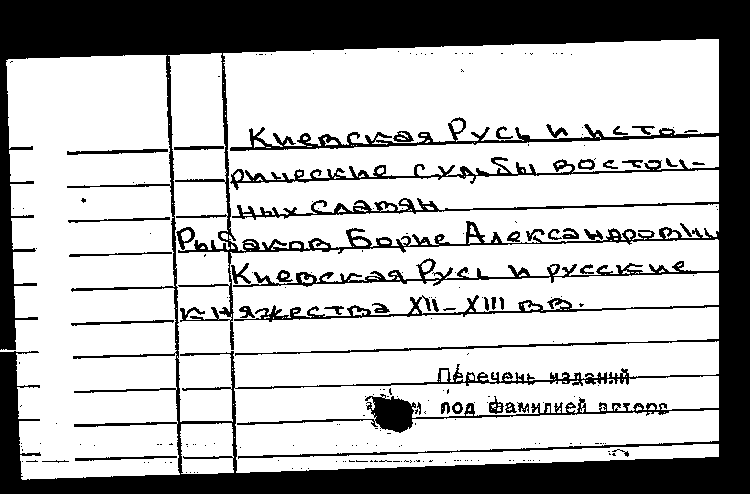 Киевская Русь и исто-
рические судьбы восточ-
ных славян.
Рыбаков, Борис Александрович
Киевская Русь и русские
княжества XII-XIII вв.
Перечень изданий
под фамилией автора